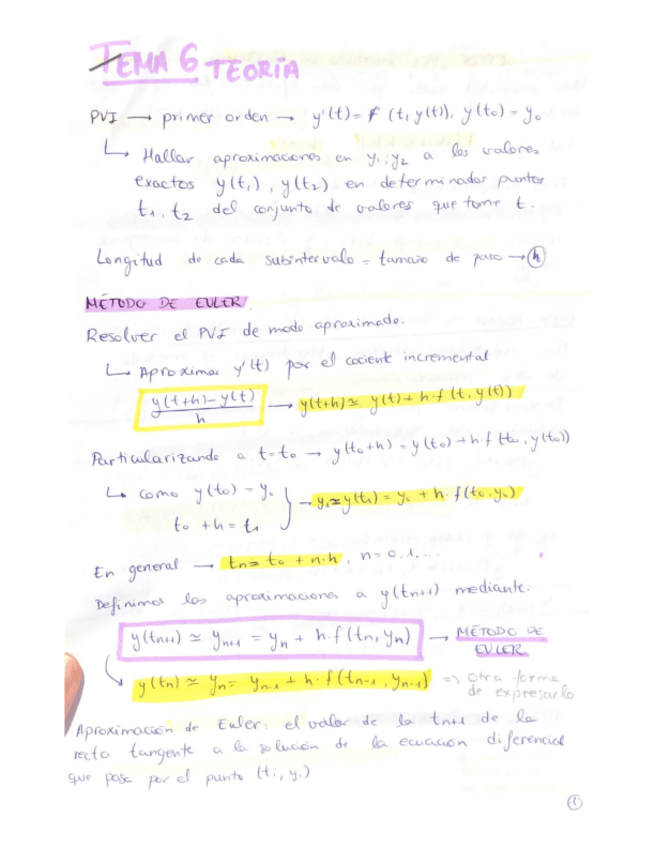 TEMA 6 TEORÍA
PVI → primer orden → y'(t) = f (t, y(t)), y(t₀) = y₀
↳ Hallar aproximaciones en y₁, y₂ a los valores
exactos y(t₁), y(t₂) en determinados puntos
t₁, t₂ del conjunto de valores que tome t.
Longitud de cada subintervalo = tamaño de paso → h
MÉTODO DE EULER
Resolver el PVI de modo aproximado.
↳ Aproximar y'(t) por el cociente incremental
(y(t+h) - y(t))/h → y(t+h) ≃ y(t) + h·f (t, y(t))
Particularizando a t=t₀ → y(t₀+h) = y(t₀) + h·f (t₀, y(t₀))
↳ como y(t₀) = y₀
t₀ + h = t₁ } → y₁ ≃ y(t₁) = y₀ + h·f(t₀, y₀)
En general → tn = t₀ + n·h, n = 0, 1, ...
Definimos las aproximaciones a y(tn+1) mediante:
y(tn+1) ≃ yn+1 = yn + h·f (tn, yn) → MÉTODO DE
EULER
y(tn) ≃ yn = yn-1 + h·f (tn-1, yn-1) => otra forma
de expresarlo
Aproximación de Euler: el valor de la tn+1 de la
recta tangente a la solución de la ecuación diferencial
que pasa por el punto (ti, yi)
1